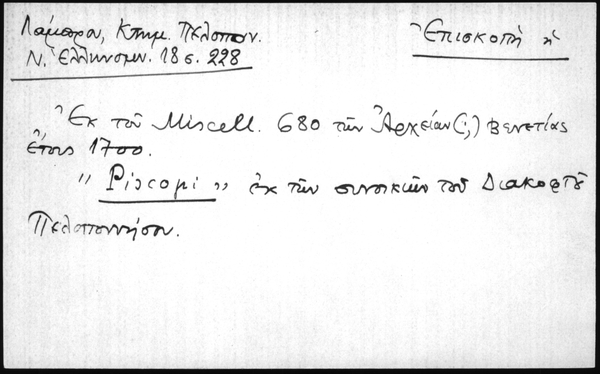 Λάμπρου, Κτημ. Πελοπον.
Ν. Ἑλληνομν. 18 σ. 228
Ἐπισκοπὴ ἡ
Ἐκ τοῦ Miscell. 680 τῶν Ἀρχείων (;) Βενετίας
ἔτους 1700.
" Piscopi " ἐκ τῶν συνοικιῶν τοῦ
Πελοποννήσου.